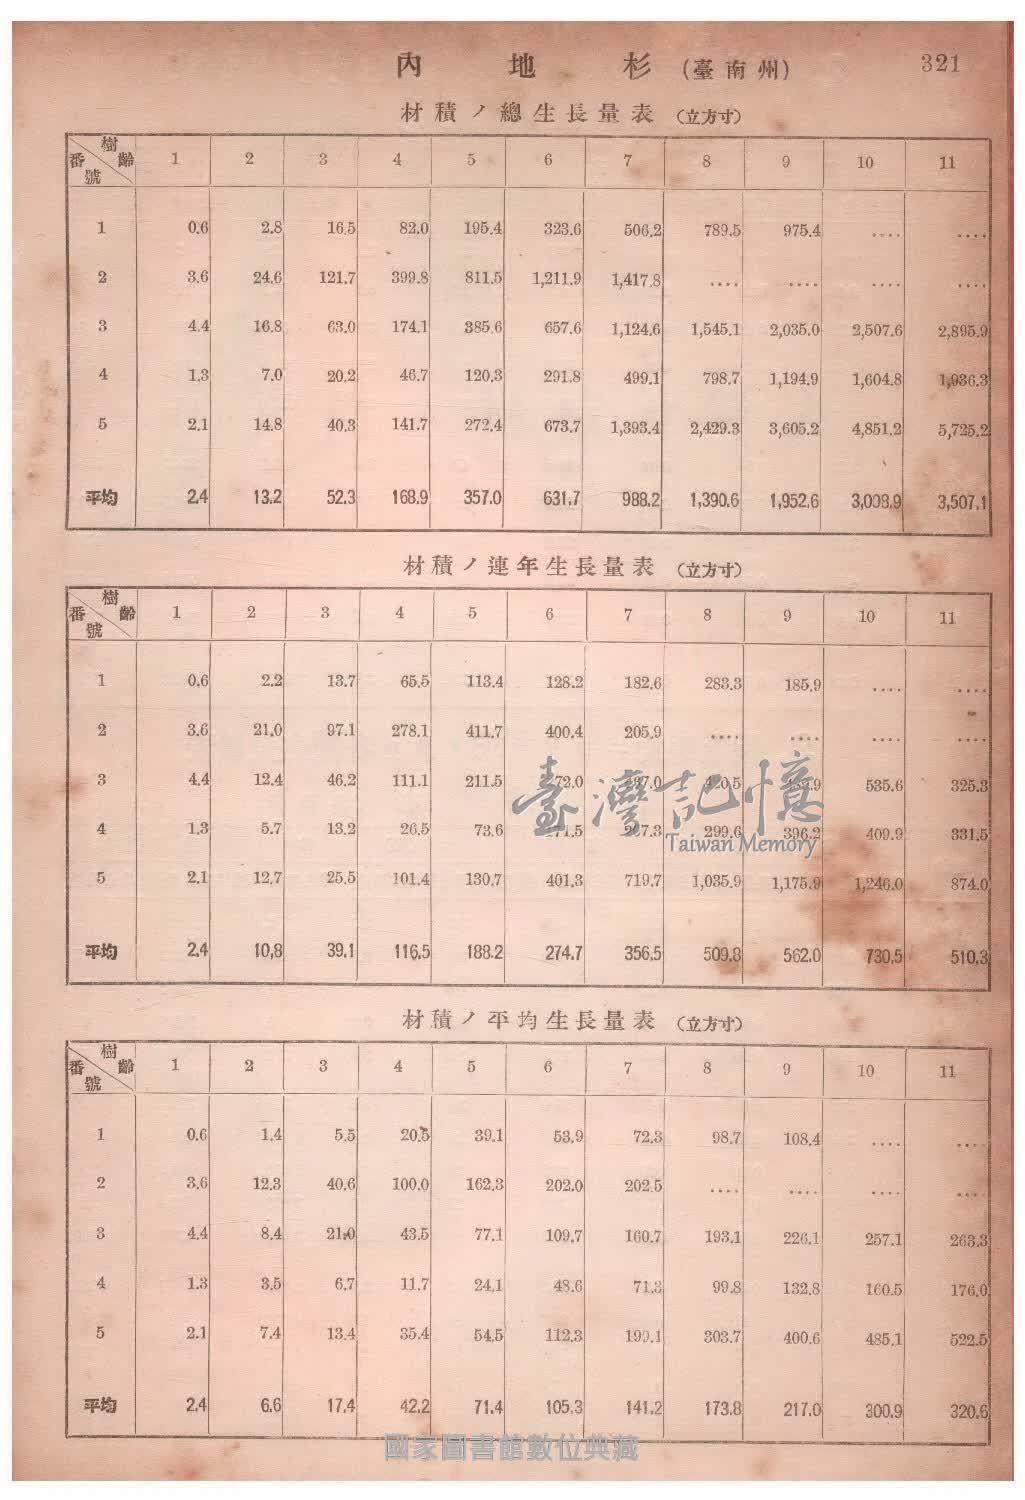 內地杉(臺南州) 321
材積ノ總生長量表 (立方寸)
樹齡 番號 1 2 3 4 5 6 7 8 9 10 11
1 0.6 2.8 16.5 82.0 195.4 323.6 506.2 789.5 975.4 .... ....
2 3.6 24.6 121.7 399.8 811.5 1,211.9 1,417.8 .... .... .... ....
3 4.4 16.8 63.0 174.1 385.6 657.6 1,124.6 1,545.1 2,035.0 2,507.6 2,895.9
4 1.3 7.0 20.2 46.7 120.3 291.8 499.1 798.7 1,194.9 1,604.8 1,936.3
5 2.1 14.8 40.3 141.7 272.4 673.7 1,393.4 2,429.3 3,605.2 4,851.2 5,725.2
平均 2.4 13.2 52.3 168.9 357.0 631.7 988.2 1,390.6 1,952.6 3,008.9 3,507.1
材積ノ連年生長量表 (立方寸)
樹齡 番號 1 2 3 4 5 6 7 8 9 10 11
1 0.6 2.2 13.7 65.5 113.4 128.2 182.6 283.3 185.9 .... ....
2 3.6 21.0 97.1 278.1 411.7 400.4 205.9 .... .... .... ....
3 4.4 12.4 46.2 111.1 211.5 535.6 325.3
4 1.3 5.7 13.2 26.5 73.6 299.6 396.2 409.9 331.5
5 2.1 12.7 25.5 101.4 130.7 401.3 719.7 1,035.9 1,175.9 1,246.0 874.0
平均 2.4 10.8 39.1 116.5 188.2 274.7 356.5 509.8 562.0 730.5 510.3
臺灣記憶
Taiwan Memory
材積ノ平均生長量表 (立方寸)
樹齡 番號 1 2 3 4 5 6 7 8 9 10 11
1 0.6 1.4 5.5 20.5 39.1 53.9 72.3 98.7 108.4 .... ....
2 3.6 12.3 40.6 100.0 162.3 202.0 202.5 .... .... .... ....
3 4.4 8.4 21.0 43.5 77.1 109.7 160.7 193.1 226.1 257.1 263.3
4 1.3 3.5 6.7 11.7 24.1 48.6 71.3 99.8 132.8 160.5 176.0
5 2.1 7.4 13.4 35.4 54.5 112.3 199.1 303.7 400.6 485.1 522.5
平均 2.4 6.6 17.4 42.2 71.4 105.3 141.2 173.8 217.0 300.9 320.6
國家圖書館數位典藏